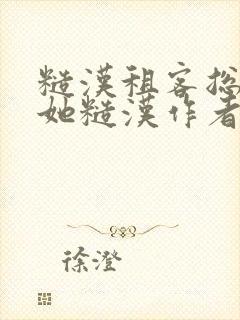 糙漢租客総
她糙漢作者
徐澄